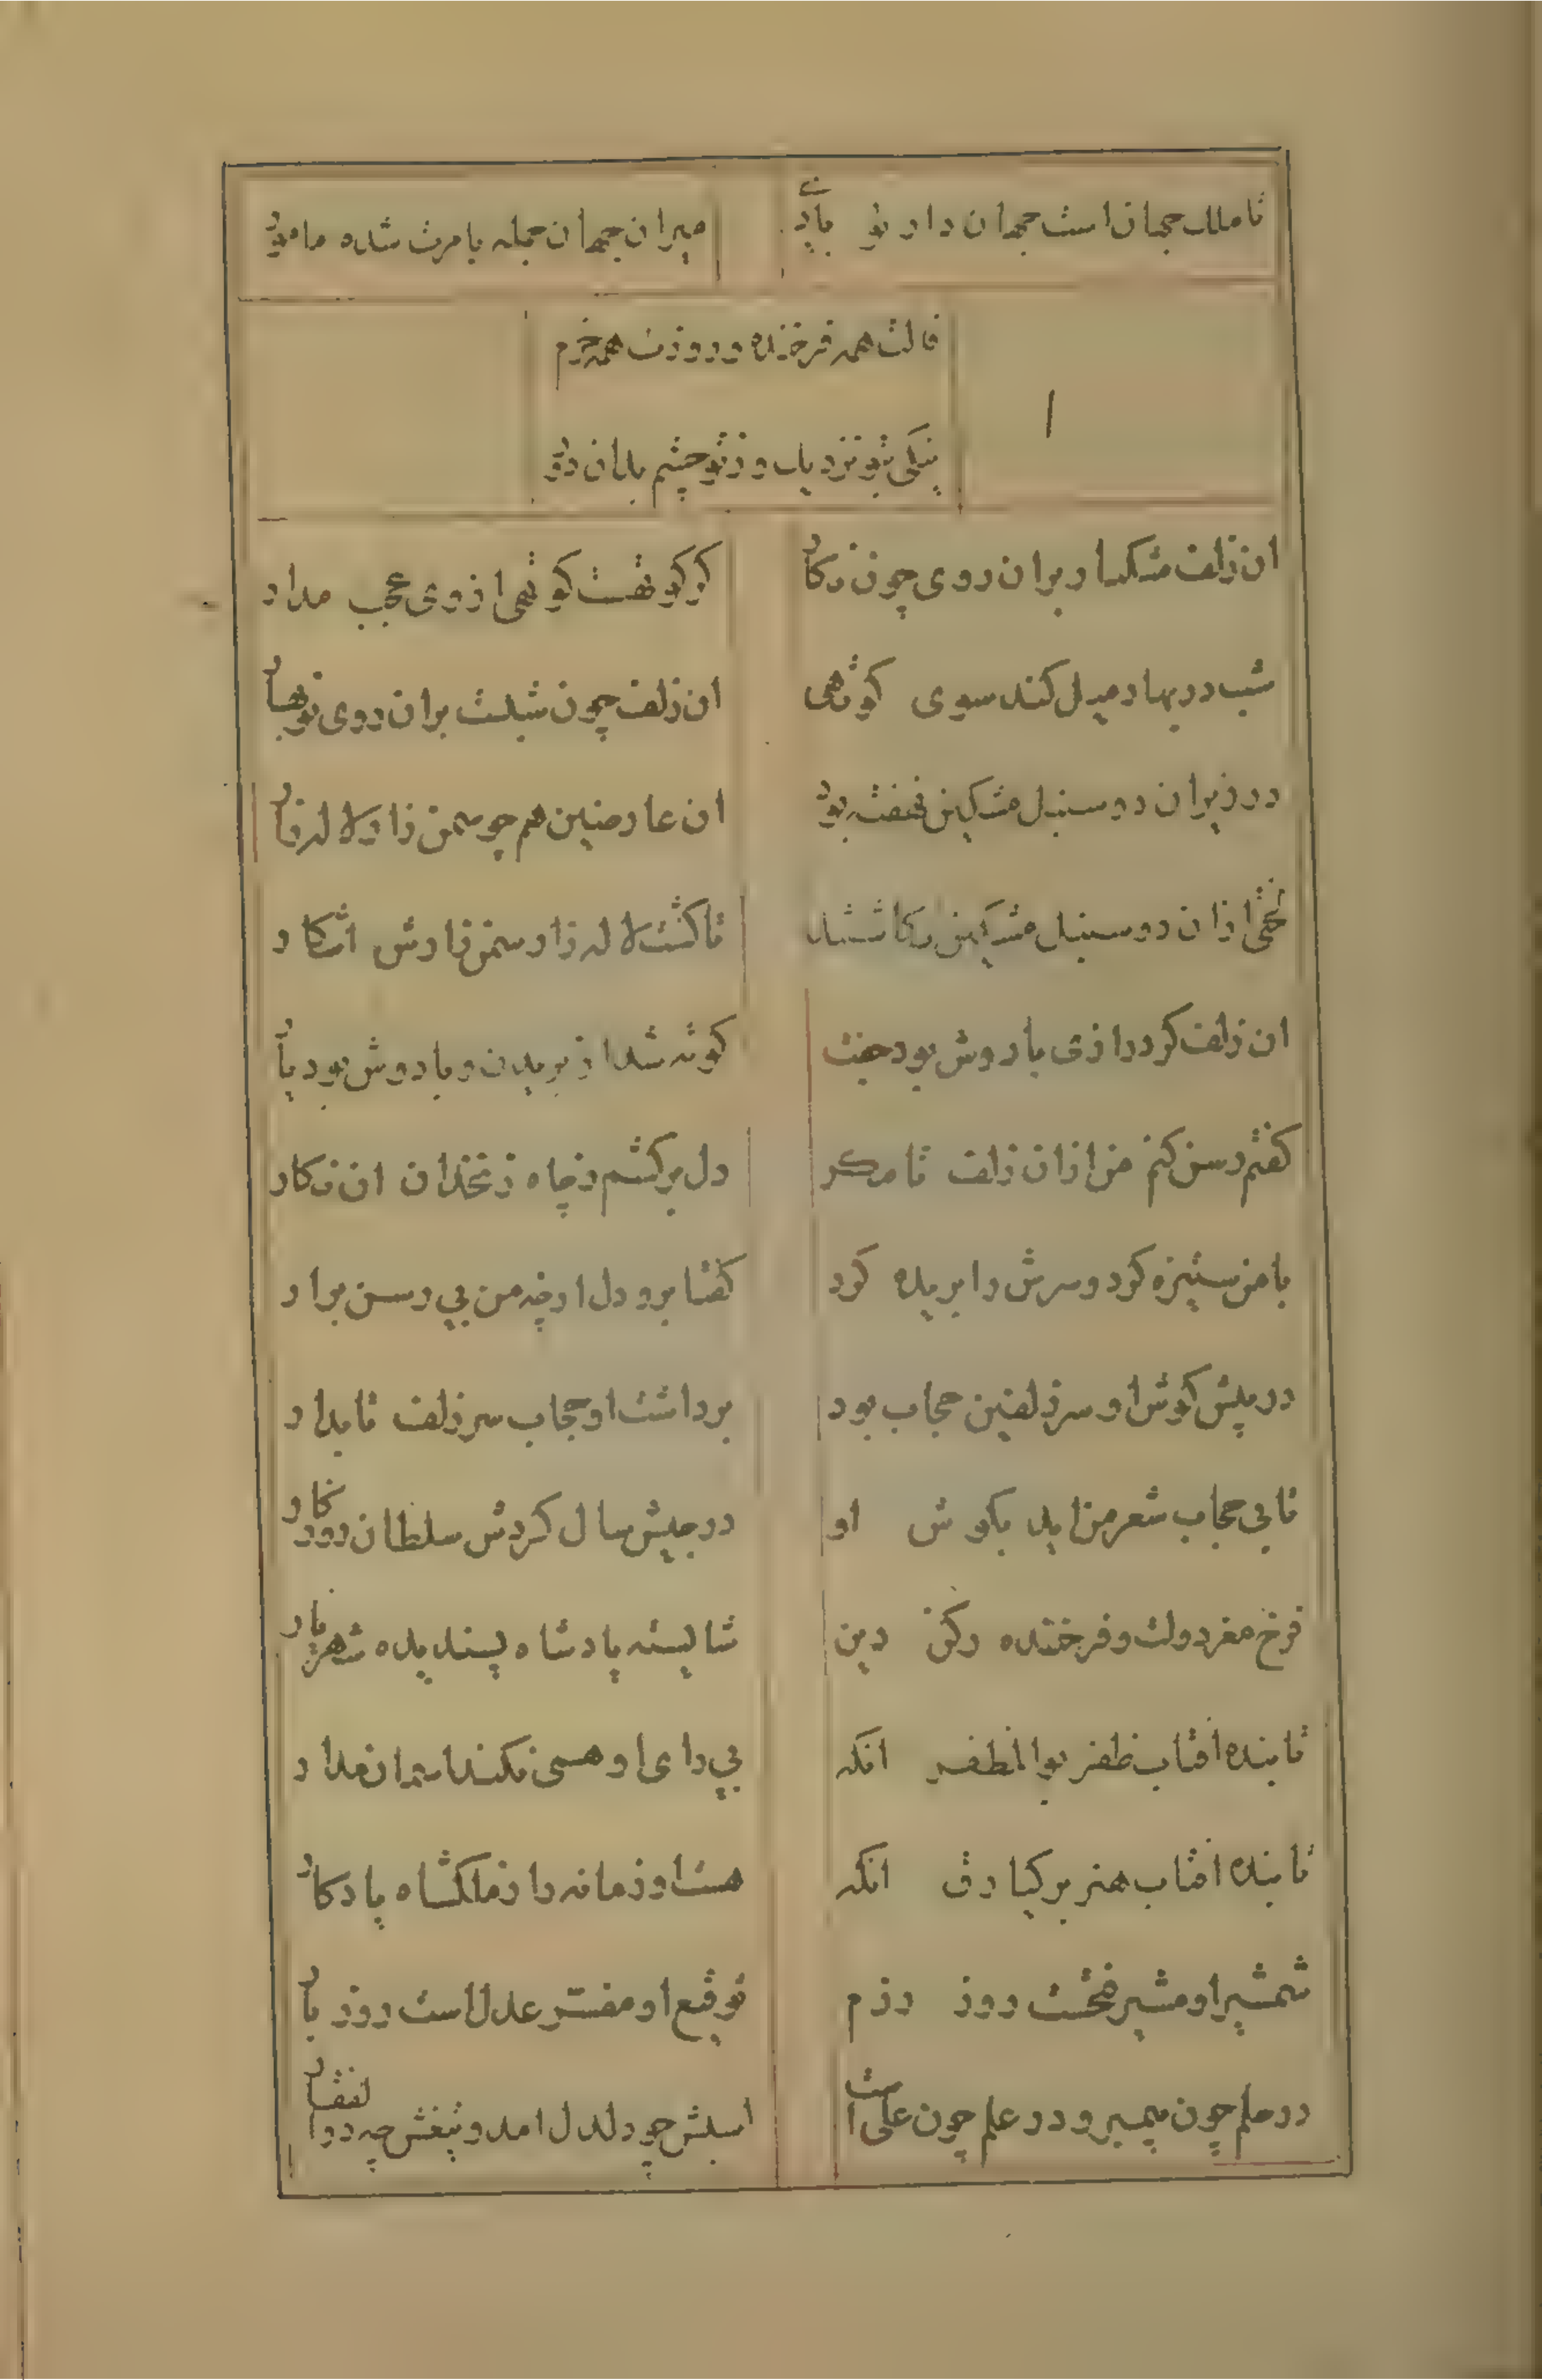 تا ملک جهان است جهان دار تو بادی
میران جهان جمله بامرت شده مامور
فالت همه فرخنده و روزت همه خرم
نیکی بتو نزدیک و ز تو چشم بدان دور
ان زلف مشکبار بران روی چون نگار
گر کوتهست کوتهی از وی عجب مدار
شب در بهار میل کند سوی کوتهی
ان زلف چون شبست بران روی نوبهار
در زیر ان دو سنبل مشکین نهفته بود
ان عارضین همچو سمن زار و لاله زار
لختی ازان دو سنبل مشکین بکاستند
تا گشت لاله زار و سمن زارش اشکار
ان زلف کرد رازی با دوش بود جفت
کوته شد از بریدن و با دوش بود یار
گفتم رسن کنم من ازان زلف تا مکر
دل برکشم ز چاه زنخدان ان نکار
با من ستیزه کرد و سرش را بریده کرد
گفتا برو دل از چه من بی رسن برار
در پیش گوش او سر زلفین حجاب بود
برداشت او حجاب سر زلف تابدار
تا بی حجاب شعر من اید بگوش او
در جشن سال گردش سلطان روزکار
فرخ معز دولت و فرخنده رکن دین
شایسته پادشاه پسندیده شهریار
تابنده افتاب ظفر بوالمظفر انکه
بی رای او همی نکند اسمان مدار
تابنده افتاب هنر برکیارق انکه
هست او زمانه را ز ملکشاه یادکار
شمشیر او مشیر فتحست روز رزم
توقیع او مفسر عدل است روز بار
در حلم چون پیمبر و در علم چون علی است
اسبش چو دلدل امد و تیغش چه ذوالفقار